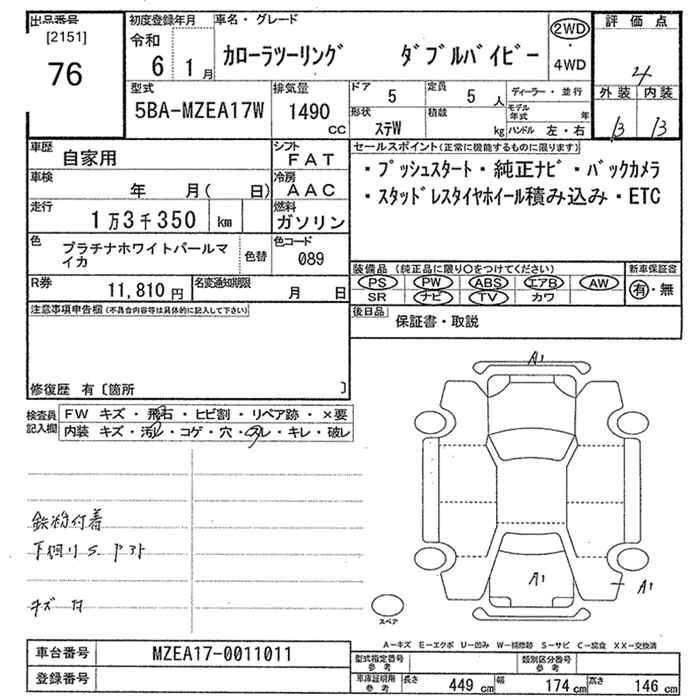 出品番号
[2151]
76
初度登録年月
令和
6 1月
車名・グレード
カローラツーリング ダブルバイビー
2WD
・
4WD
評価点
4
外装 内装
B B
型式
5BA-MZEA17W
排気量
1490
cc
ドア
5
定員
5 人
形状
ステW
積載
kg
ディーラー・並行
モデル年式 年
ハンドル 左・右
車歴
自家用
シフト
FAT
車検
年 月( 日)
冷房
AAC
走行
1万3千350 km
燃料
ガソリン
色
プラチナホワイトパールマイカ
色替
色コード
089
R券
11,810 円
名変通知期限
月 日
セールスポイント(正常に機能するものに限ります)
・プッシュスタート・純正ナビ・バックカメラ
・スタッドレスタイヤホイール積み込み・ETC
装備品 (純正品に限り○をつけてください)
PS PW ABS エアB AW
SR ナビ TV カワ
新車保証書
有・無
後日品
保証書・取説
注意事項申告欄(不具合内容等は具体的に記入して下さい)
修復歴 有〔箇所 〕
検査員記入欄
FW キズ・飛石・ヒビ割・リペア跡・×要
内装 キズ・汚レ・コゲ・穴・スレ・キレ・破レ
鉄粉付着
下回りS.アト
キズ 付
A1
A1
A1
スペア
A-キズ E-エクボ U-凹み W-補修跡 S-サビ C-腐食 XX-交換済
車台番号
MZEA17-0011011
登録番号
型式指定番号
参考
類別区分番号
参考
車庫証明用
参考
長さ 449 cm 幅 174 cm 高さ 146 cm